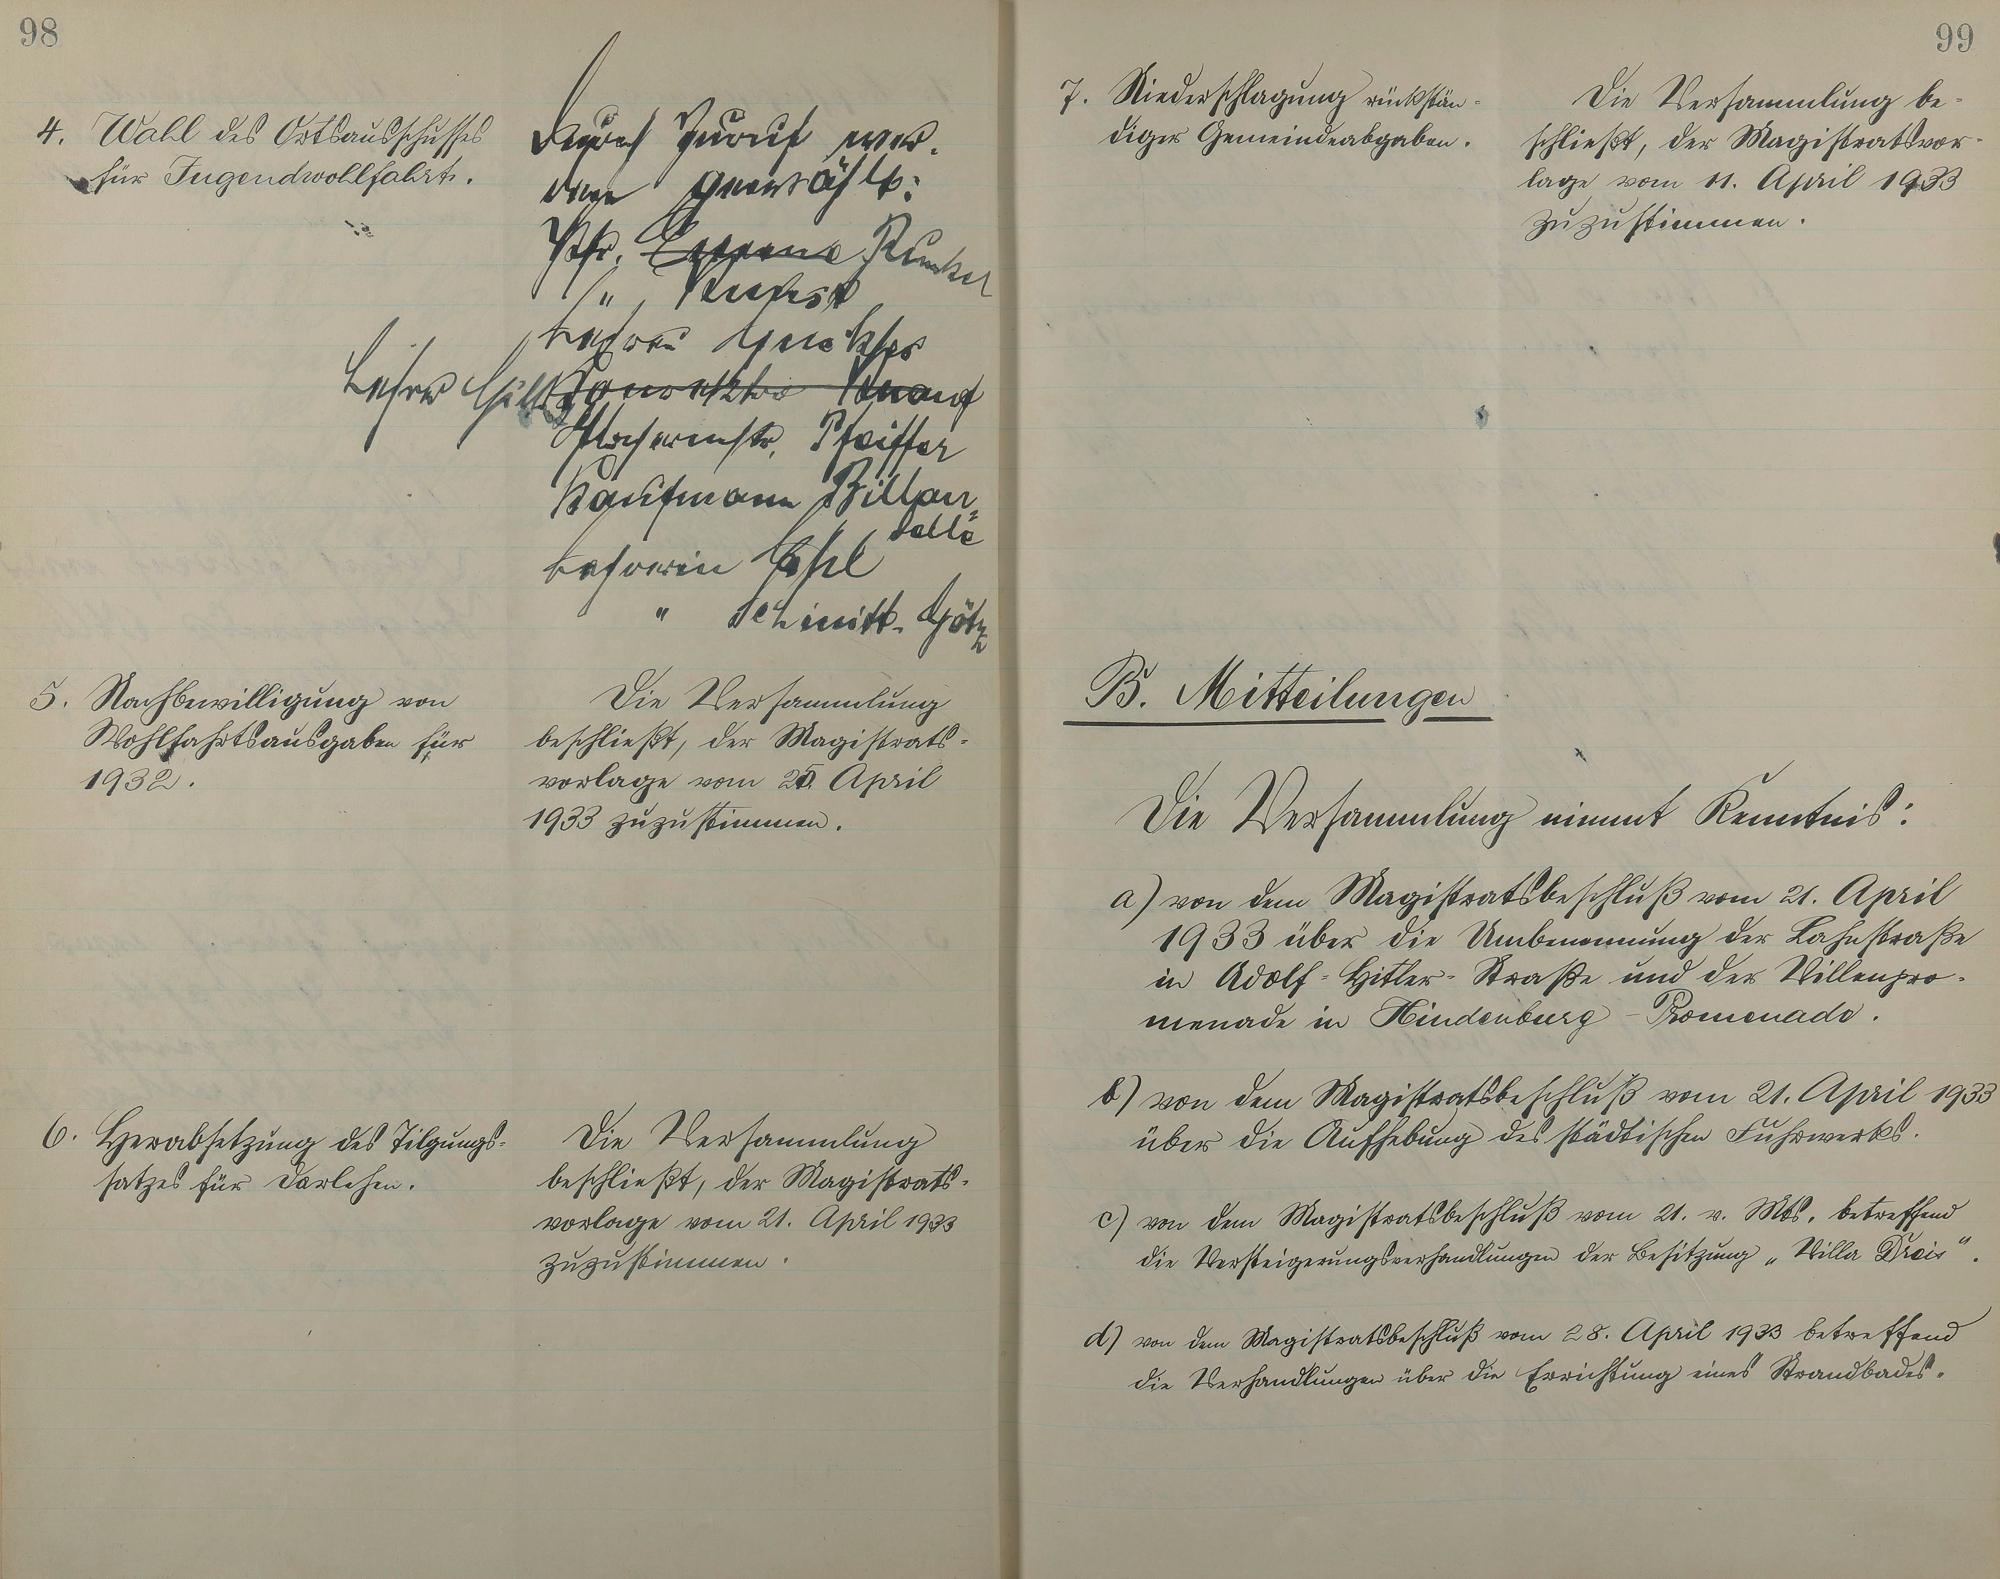 98
4. Wahl des Ortsausschusses
für Jugendwohlfahrt.
Durch Zuruf wer-
den gewählt:
Pfr. Runkel
" Kunst
Lehrer
Lehrer
Konrektor Knauf
Schlossermstr. Pfeiffer
Kaufmann Billau-
dellé
Lehrerin
" Schmitt-Götz
5. Nachbewilligung von
Wohlfahrtsausgaben für
1932.
Die Versammlung
beschließt, der Magistrats-
vorlage vom April
1933 zuzustimmen.
6. Herabsetzung des Tilgungs-
satzes für Darlehen.
Die Versammlung
beschließt, der Magistrats-
vorlage vom 21. April 1933
zuzustimmen.
99
7. Niederschlagung rückstän-
diger Gemeindeabgaben.
Die Versammlung be-
schließt, der Magistratsvor-
lage vom 11. April 1933
zuzustimmen.
B. Mitteilungen
Die Versammlung nimmt Kenntnis:
a) von dem Magistratsbeschluß vom 21. April
1933 über die Umbenennung der Lahnstraße
in Adolf-Hitler-Straße und der Villenpro-
menade in Hindenburg-Promenade.
b) von dem Magistratsbeschluß vom 21. April 1933
über die Aufhebung des städtischen Fuhrwerks.
c) von dem Magistratsbeschluß vom 21. v. Mts. betreffend
die Versteigerungsverhandlungen der Besitzung „Villa
d) von dem Magistratsbeschluß vom 28. April 1933 betreffend
die Verhandlungen über die Errichtung eines Strandbades.